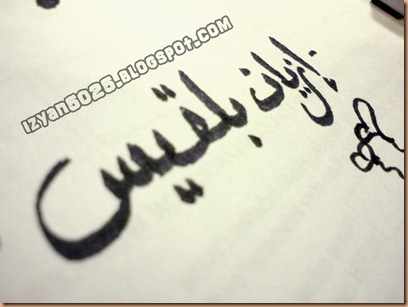 izyan5025.blogspot.com
ايزيان بلقيس